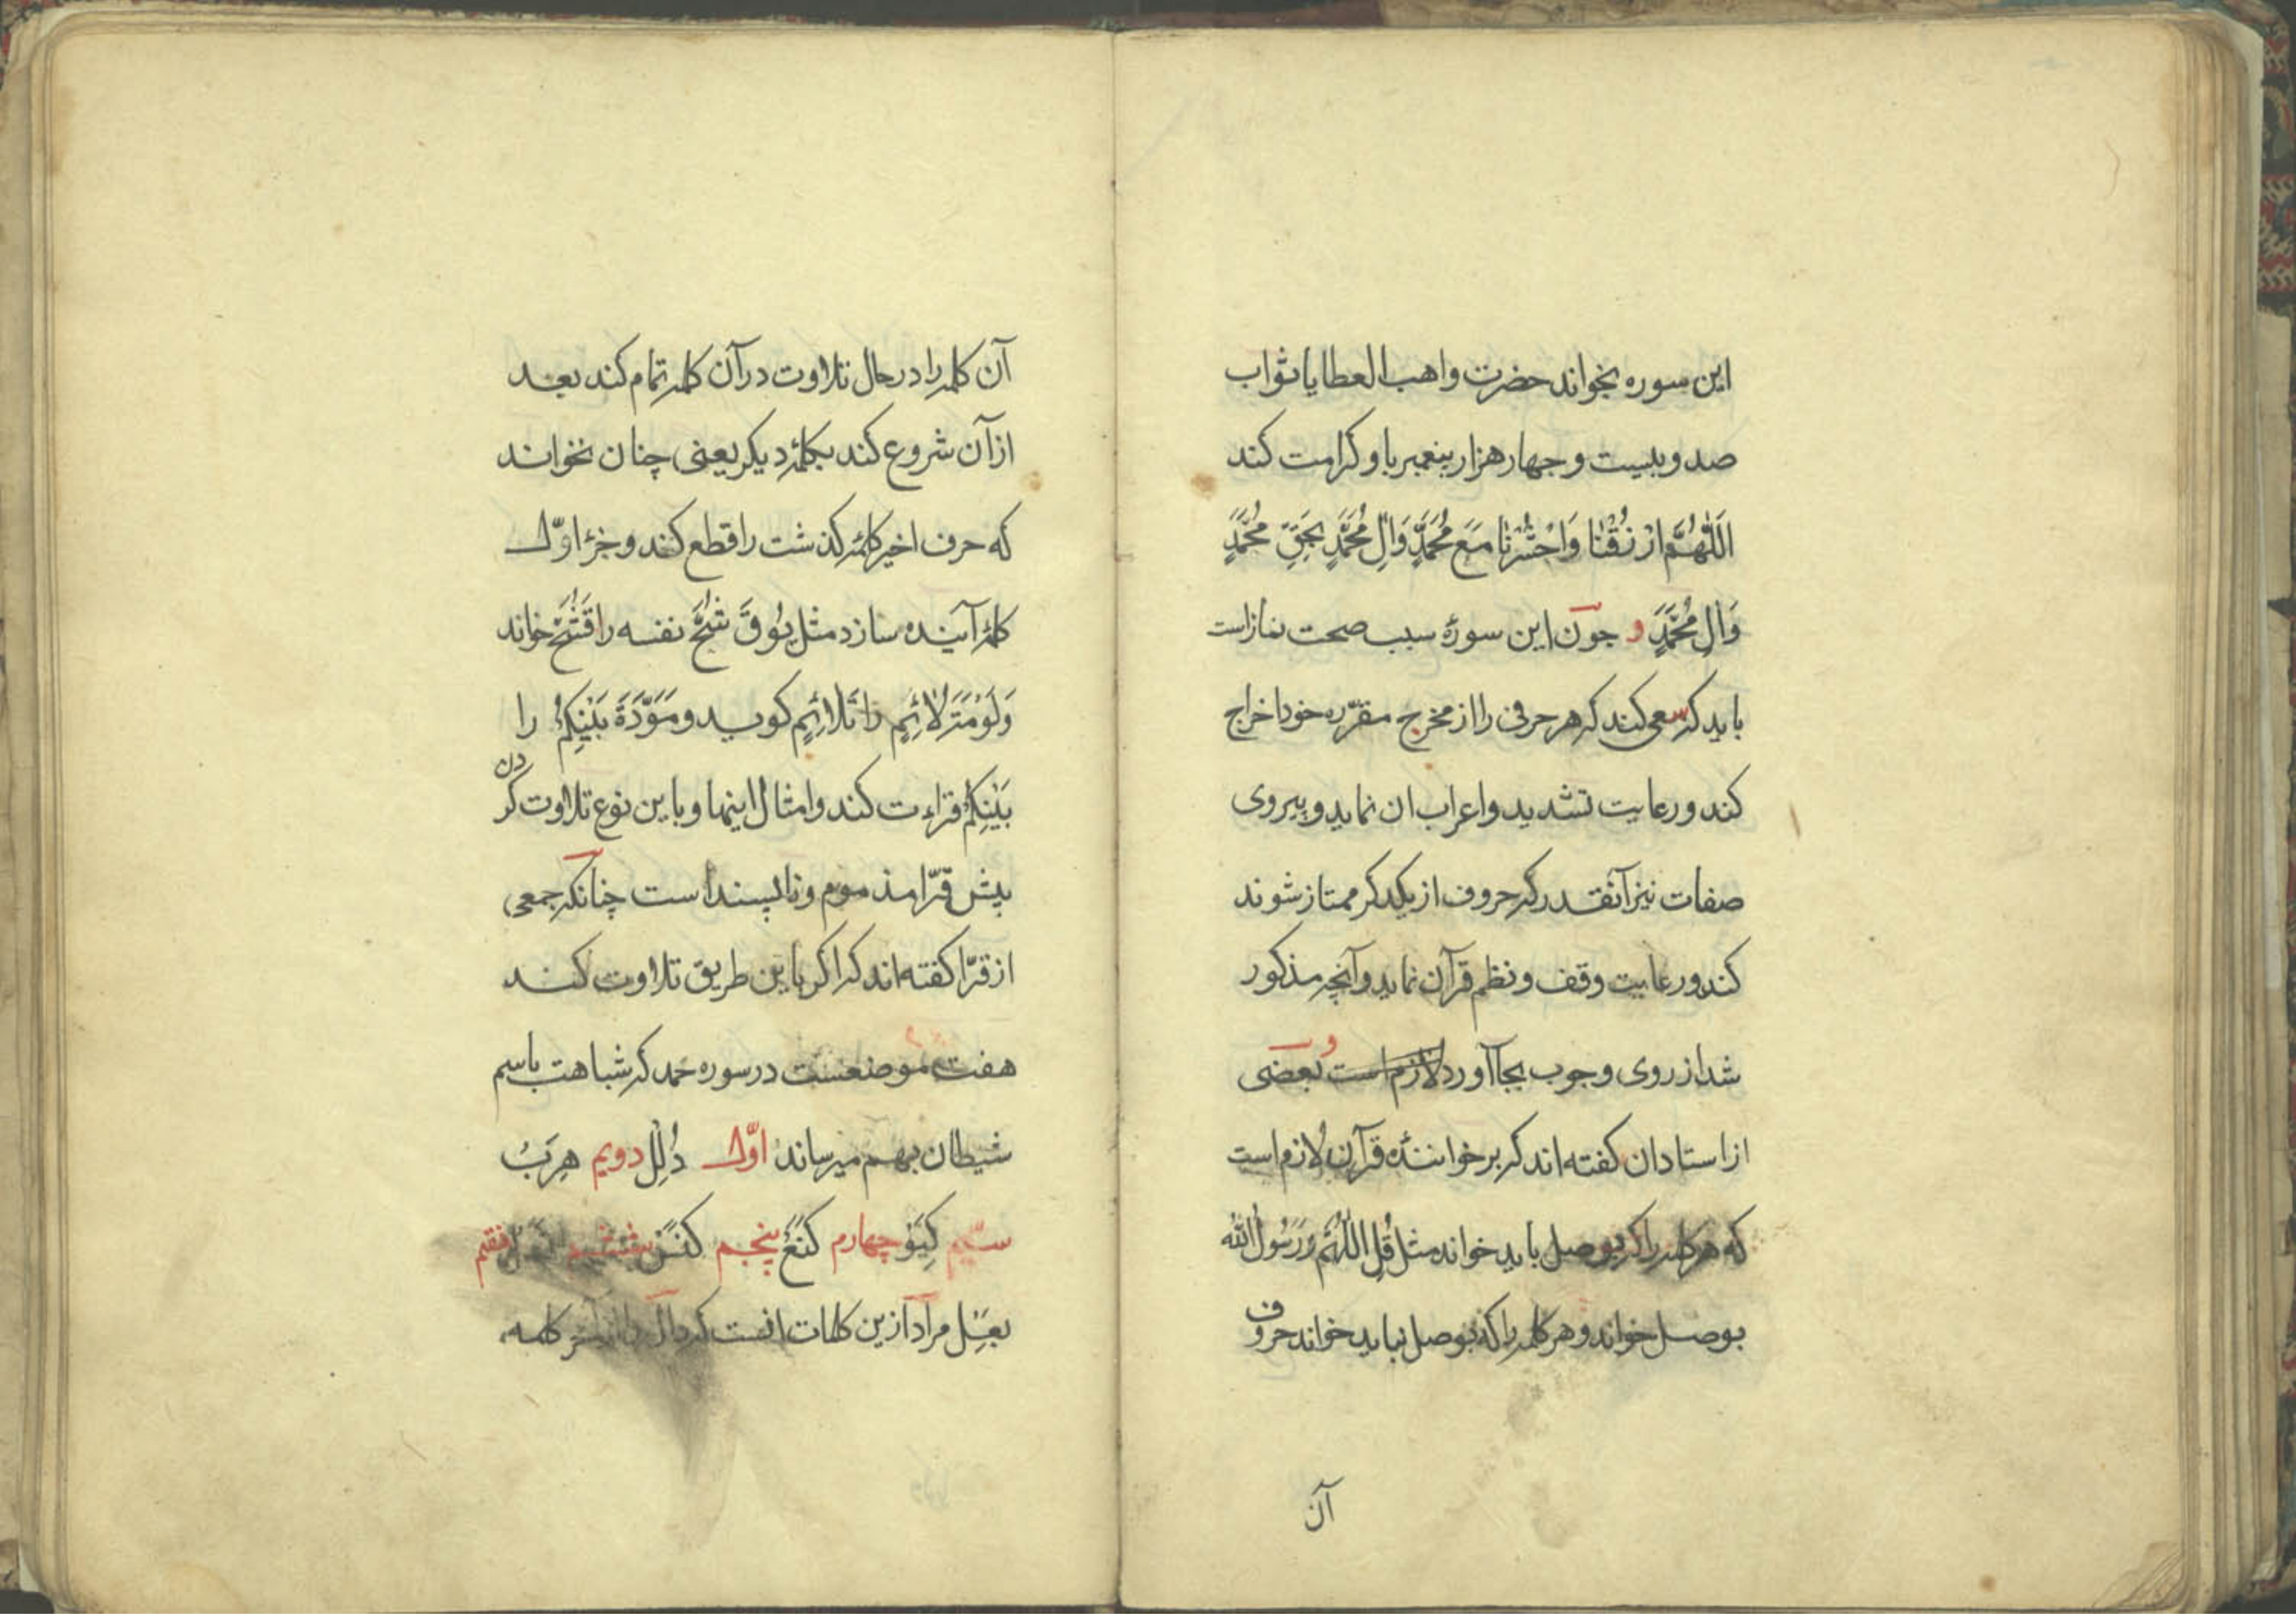 این سوره بخواند حضرت واهب العطایا ثواب
صد و بیست و جهار هزار پیغمبر باو کرامت کند
اَللّٰهُمَّ ارْزُقْنَا وَاحْشُرْنَا مَعَ مُحَمَّدٍ وَآلِ مُحَمَّدٍ بِحَقِّ مُحَمَّدٍ
وَآلِ مُحَمَّدٍ و جون این سورهٔ سبب صحت نماز است
باید که سعی کند که هر حرفی را از مخرج مقرّره خود اخراج
کند و رعایت تشدید و اعراب ان نماید و پیروی
صفات نیز آنقدر که حروف از یکدکر ممتاز شوند
کند و رعایت وقف و نظم قرآن نماید و آنچه مذکور
شد از روی وجوب بجا آورد لازم است و بعضی
از استادان کفته اند که بر خوانندهٔ قرآن لازم است
که هر کلمه را که بوصل باید خواند مثل قُلِ اللّٰهُمَّ وَرَسُولُ اللّٰه
بوصل خواند و هر کلمه را که بوصل نباید خواند حروف
آن
آن کلمه را در حال تلاوت در آن کلمه تمام کند بعد
از آن شروع کند بکلمهٔ دیکر یعنی چنان نخواند
که حرف اخیر کلمهٔ کذشت را قطع کند و جزء اوّل
کلمهٔ آینده سازد مثل یُوقَ شُحَّ نفسه را قَشُحَّ خواند
وَلَوْمَةَ لَائِمٍ را تَلَائِمٍ کوید و مَوَدَّةَ بَیْنِکُمْ را
بَیْنِکُمْ قراءت کند و امثال اینها و باین نوع تلاوت کردن
پیش قرّا مذموم و ناپسند است چنانکه جمعی
از قرّا کفته اند که اکر باین طریق تلاوت کند
هفت موضعست در سوره حمد که شباهت باسم
شیطان بهم میرساند اوّل دُلِلِ دویم هِرَبِ
سیّم کِیَوْ چهارم کَنَعْ پنجم کَنَسْ ششم
بِعَلِ مراد ازین کلمات انست که دال را از آخر کلمه